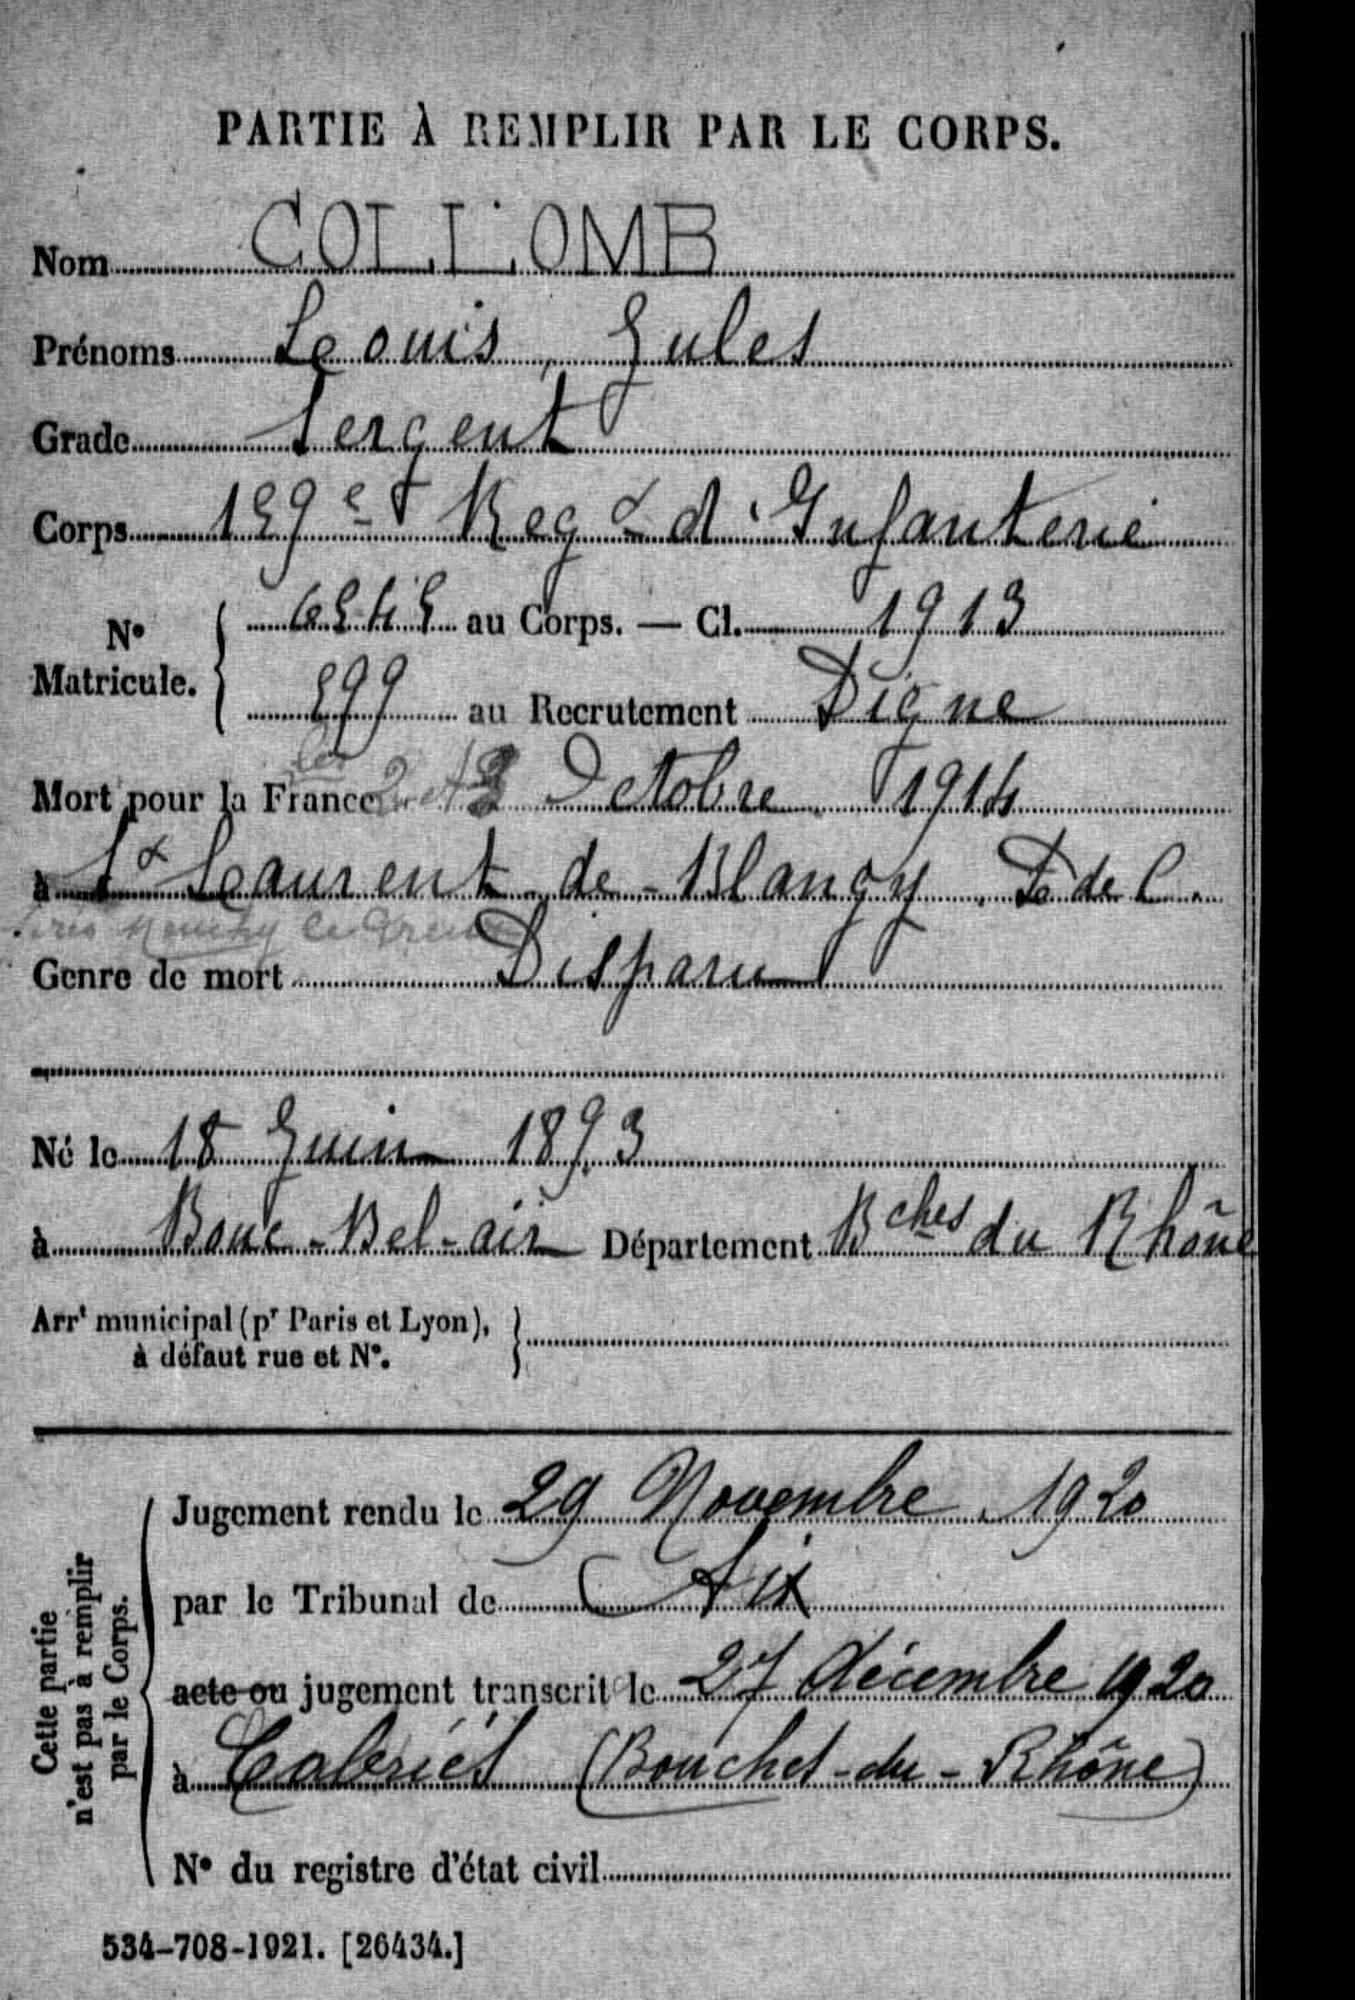 PARTIE À REMPLIR PAR LE CORPS.
Nom COLLOMB
Prénoms Louis, Jules
Grade Sergent
Corps 159e Regt d'Infanterie
N° Matricule. 6545 au Corps. — Cl. 1913
599 au Recrutement Digne
les
Mort pour la France 2 et 3 Octobre 1914
à St Laurent-de-Blangy P de C.
près Monchy le Preux
Genre de mort Disparu
Né le 18 Juin 1893
à Bouc-Bel-air Département Bches du Rhône
Arrt municipal (pr Paris et Lyon),
à défaut rue et N°.
Cette partie
n'est pas à remplir
par le Corps.
Jugement rendu le 29 Novembre 1920
par le Tribunal de Aix
acte ou jugement transcrit le 27 décembre 1920
à Cabriès (Bouches-du-Rhône)
N° du registre d'état civil
534-708-1921. [26434.]